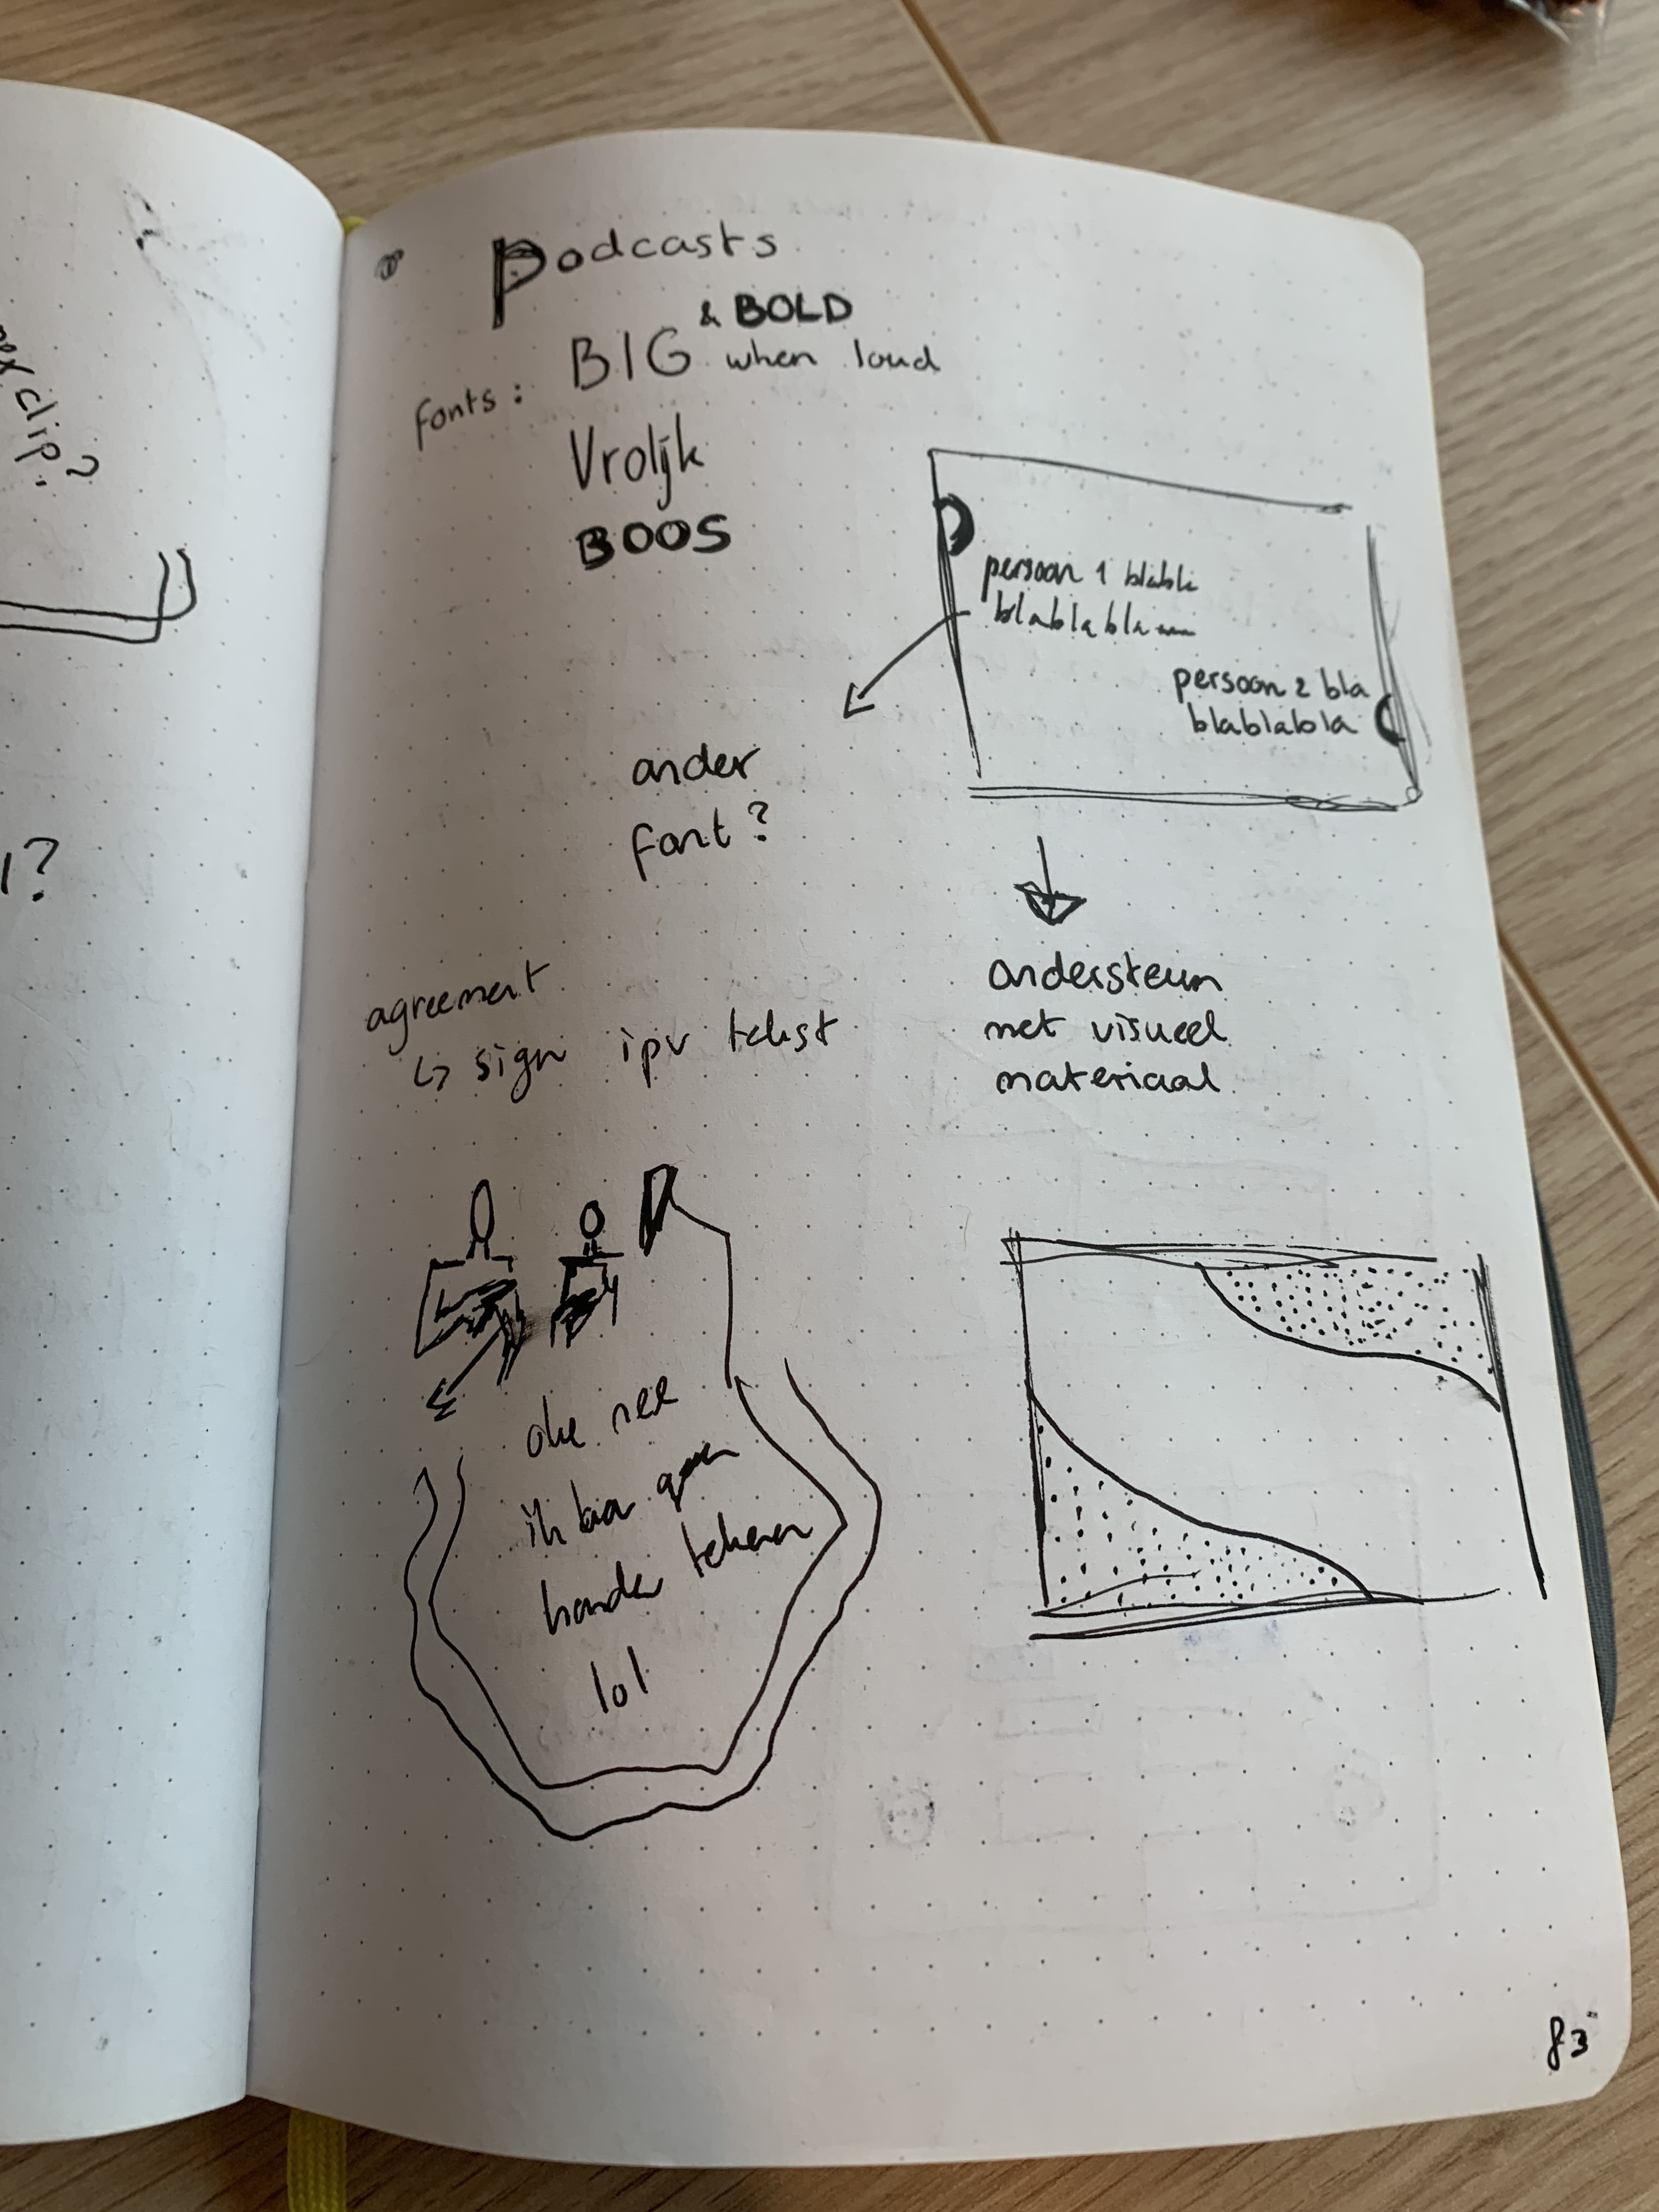 Podcasts
& BOLD
fonts: BIG when loud
Vrolijk
BOOS
persoon 1 blabla
blablabla
persoon 2 bla
blablabla
ander
font?
ondersteun
met visueel
materiaal
agreement
↳ sign ipv tekst
oke nee
ik kan geen
handen tekenen
lol
83
clip?